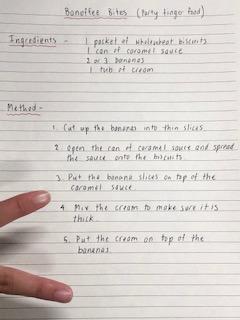 Banoffee Bites (Party finger food)
Ingredients - 1 packet of wholewheat biscuits
1 can of caramel sauce
2 or 3 bananas
1 tub of cream
Method -
1. Cut up the bananas into thin slices.
2. Open the can of caramel sauce and spread
the sauce onto the biscuits.
3. Put the banana slices on top of the
caramel sauce.
4. Mix the cream to make sure it is
thick.
5. Put the cream on top of the
bananas.